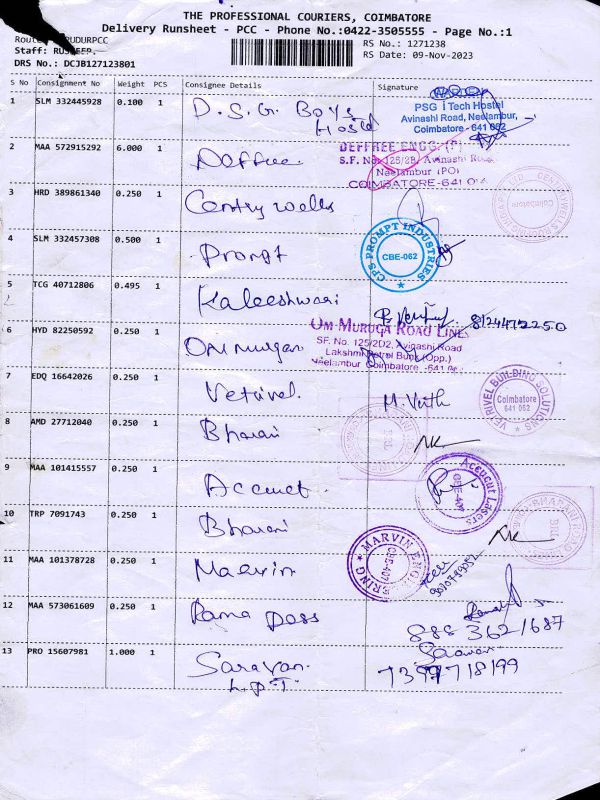 THE PROFESSIONAL COURIERS, COIMBATORE
Delivery Runsheet - PCC - Phone No.:0422-3505555 - Page No.:1
RS No.: 1271238
Staff:
RS Date: 09-Nov-2023
DRS No.: DCJB127123801
S No Consignment No Weight PCS Consignee Details Signature
1 SLM 332445928 0.100 1 D.S.G. Boys Hostel
PSG iTech Hostel
Avinashi Road, Neelambur,
Coimbatore - 641 062
2 MAA 572915292 6.000 1 Deffree.
DEFFREE ENGG. (P)
S.F. No. 125/2B, Avinashi Road
Neelambur (PO)
COIMBATORE-641
3 HRD 389861340 0.250 1 Centry wells
Coimbatore
4 SLM 332457308 0.500 1 Prompt
CPS PROMPT INDUSTRIES
CBE-062
5 TCG 40712806 0.495 1 Kaleeshwari
8124472250
6 HYD 82250592 0.250 1 Om murugan
OM MURUGA ROAD LINES
SF. No. 125/2D2, Avinashi Road
Lakshmi Petrol Bunk (Opp.)
Neelambur Coimbatore -641
7 EDQ 16642026 0.250 1 Vetrivel.
VETRIVEL BUILDING SOLUTIONS
Coimbatore
641 062
8 AMD 27712040 0.250 1 Bharani
9 MAA 101415557 0.250 1 Accucut.
Accucut Lasers
CBE-407
10 TRP 7091743 0.250 1 Bharani
11 MAA 101378728 0.250 1 Marvin
MARVIN ENGINEERING
CBE-407
12 MAA 573061609 0.250 1 Rama Dass
888 362 1687
13 PRO 15607981 1.000 1 Saravan.
Saravan